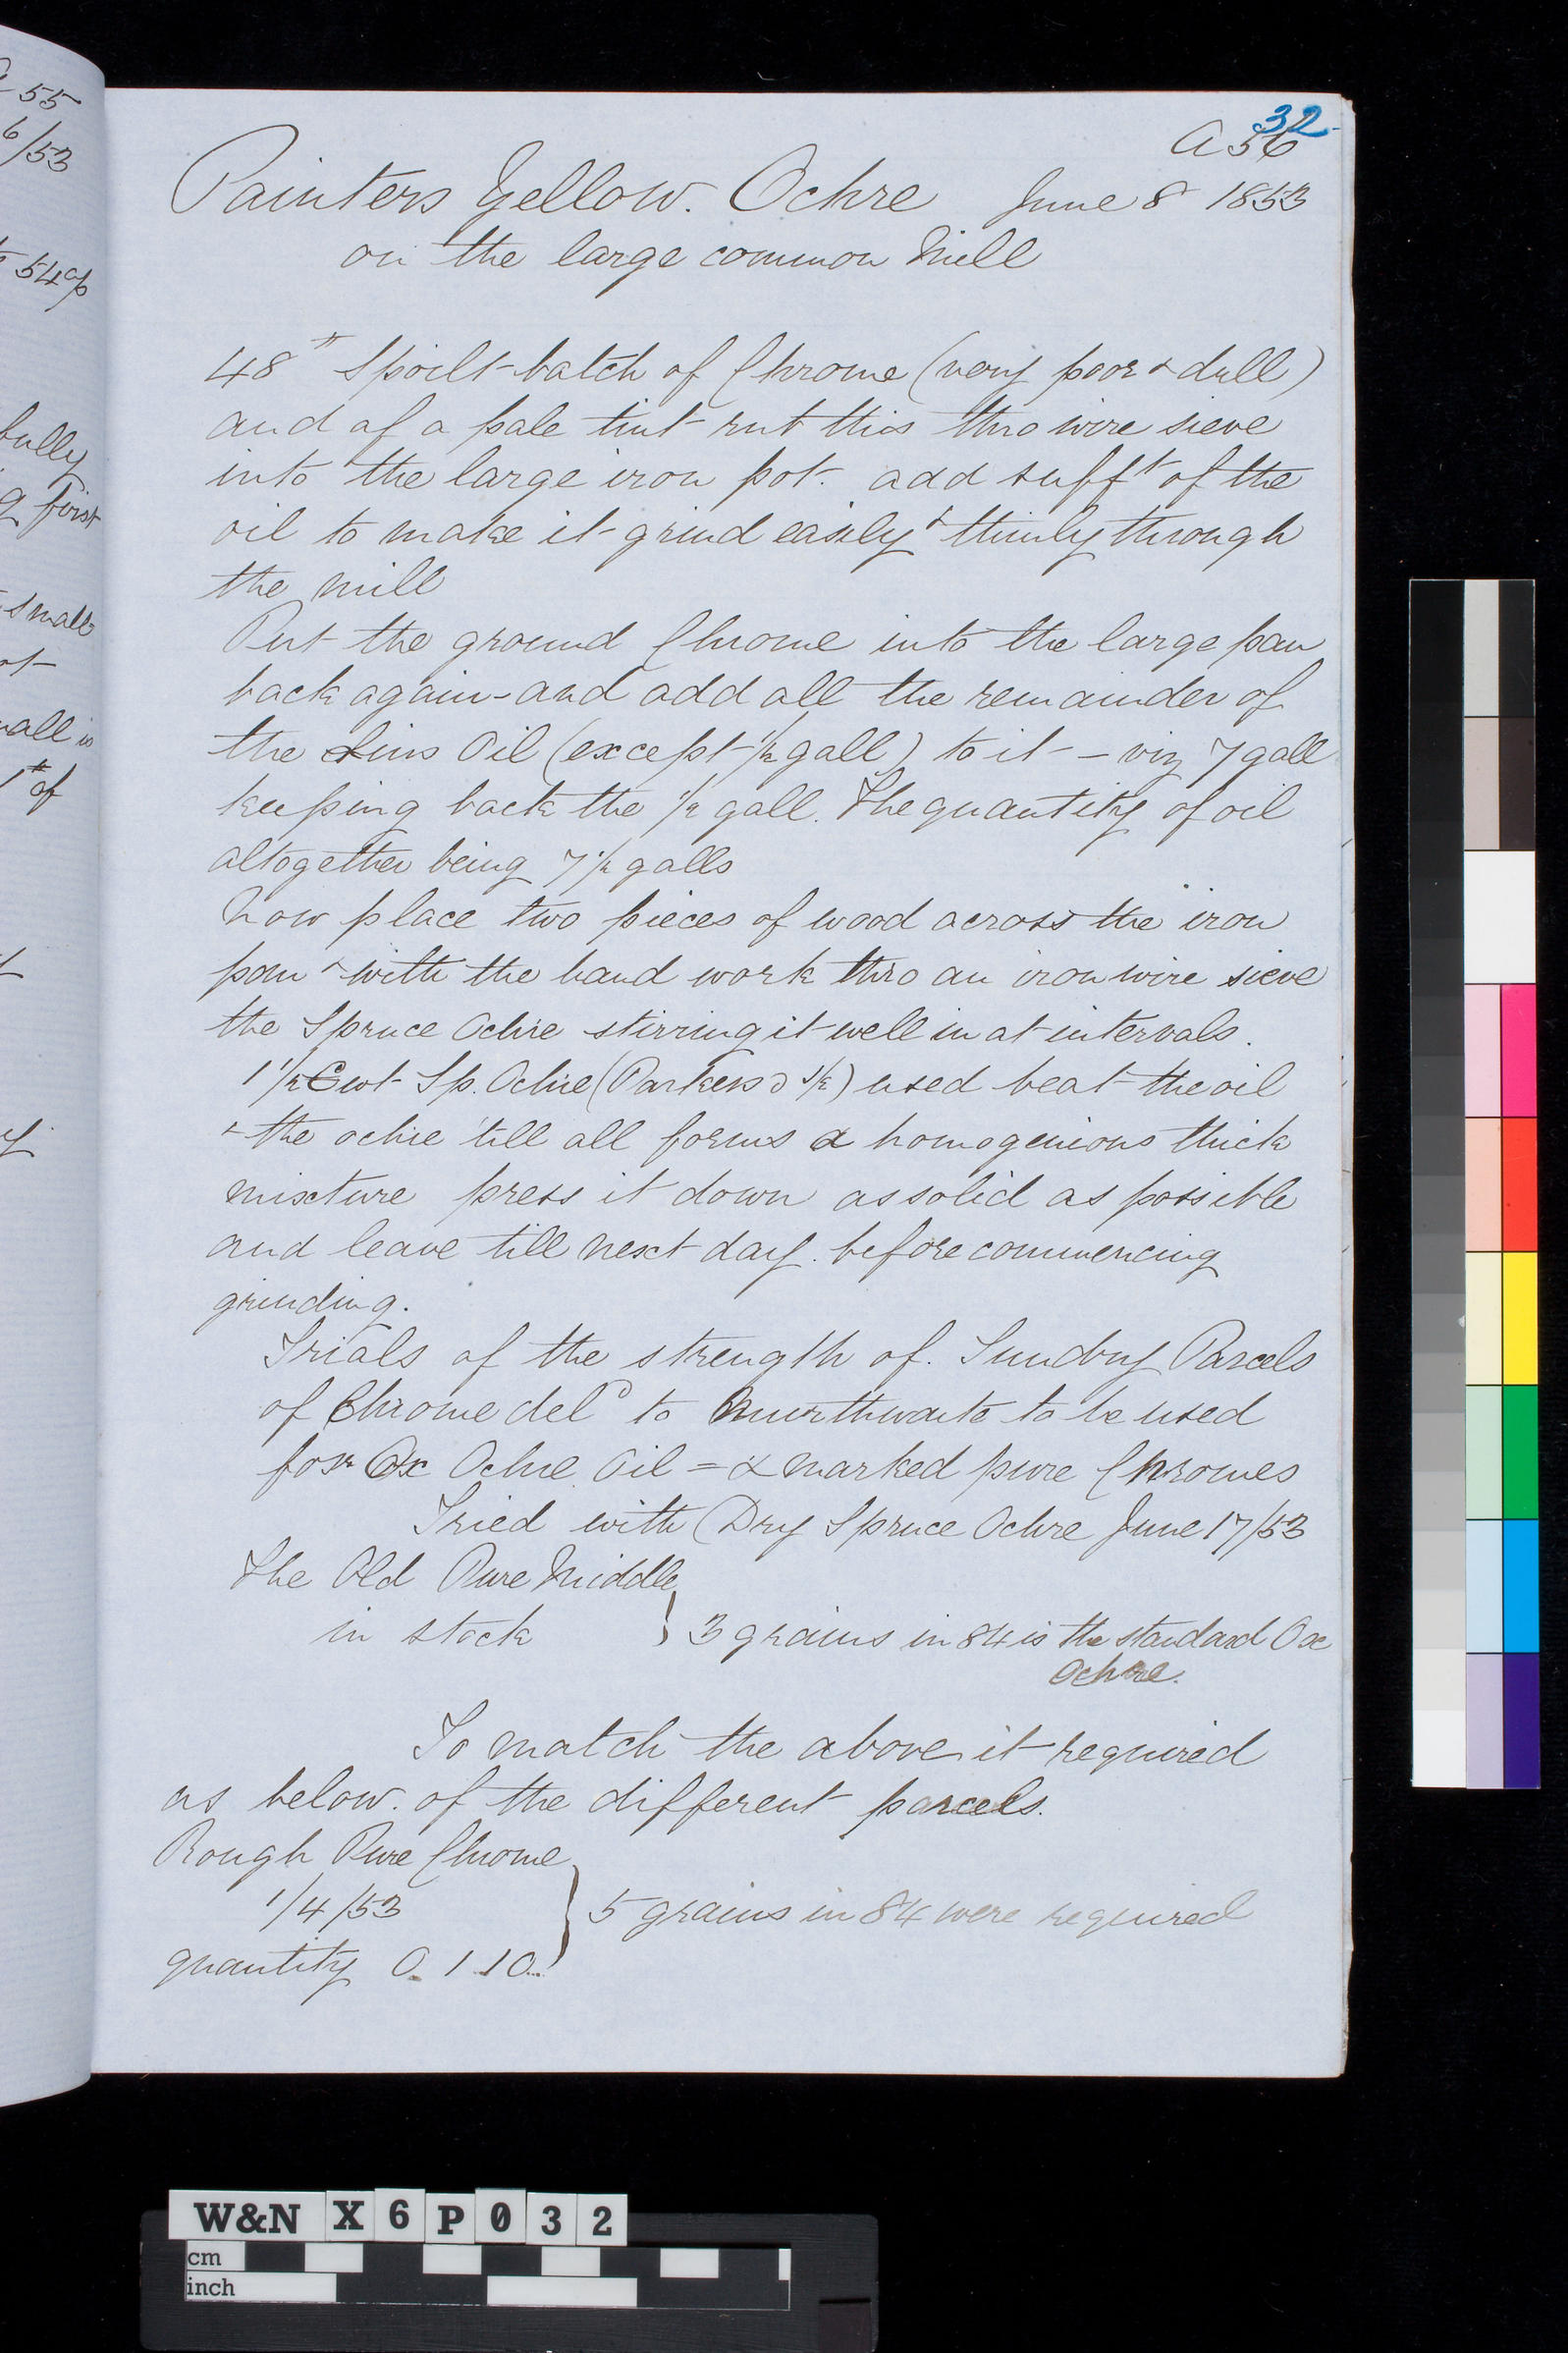 32
A 56
Painters Yellow. Ochre June 8 1853
on the large common Mill
48 lb Spoilt batch of Chrome (very poor & dull)
and of a pale tint rub this thro wire sieve
into the large iron pot. add sufft of the
oil to make it grind easily & thinly through
the mill
Put the ground Chrome into the large pan
back again - and add all the remainder of
the Lins Oil (except 1/2 gall) to it - viz 7 gall
keeping back the 1/2 gall. The quantity of oil
altogether being 7 1/2 galls
Now place two pieces of wood across the iron
pan & with the hand work thro an iron wire sieve
the Spruce Ochre stirring it well in at intervals.
1 1/2 Cwt Sp. Ochre (Parkers ) used beat the oil
& the ochre till all forms a homogenious thick
mixture press it down as solid as possible
and leave till next day. before commencing
grinding.
Trials of the strength of. Sundry Parcels
of Chrome deld to Murthwaite to be used
for Ox Ochre Oil = & marked pure Chromes
Tried with Dry Spruce Ochre June 17/53
The Old Pure Middle
in stock } 3 grains in 84 is the standard Ox
Ochre.
To match the above it required
as below. of the different parcels.
Rough Pure Chrome
1/4/53 } 5 grains in 84 were required
quantity 0. 1 . 10..
55
6/53
54
bully
first
small
all in
1 lb of
W&N X6P032
cm
inch